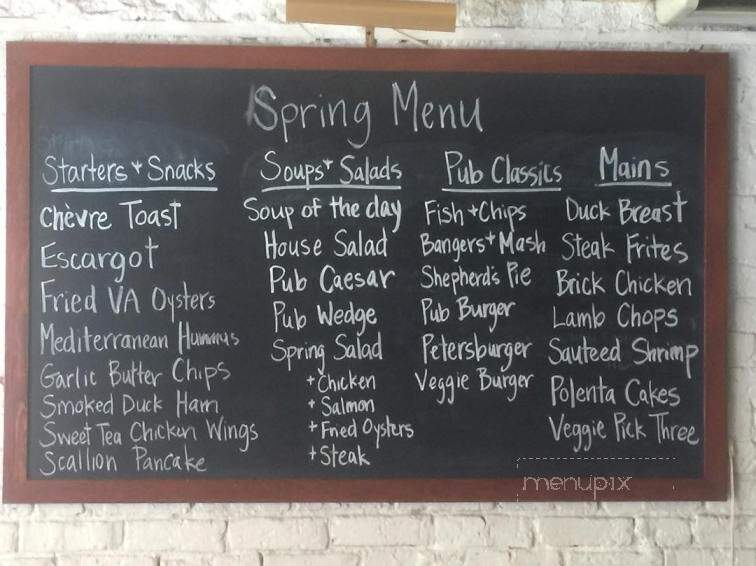 Spring Menu
Starters + Snacks
Chèvre Toast
Escargot
Fried VA Oysters
Mediterranean Hummus
Garlic Butter Chips
Smoked Duck Ham
Sweet Tea Chicken Wings
Scallion Pancake
Soups + Salads
Soup of the day
House Salad
Pub Caesar
Pub Wedge
Spring Salad
+ Chicken
+ Salmon
+ Fried Oysters
+ Steak
Pub Classics
Fish + Chips
Bangers + Mash
Shepherd's Pie
Pub Burger
Petersburger
Veggie Burger
Mains
Duck Breast
Steak Frites
Brick Chicken
Lamb Chops
Sauteed Shrimp
Polenta Cakes
Veggie Pick Three
menupix